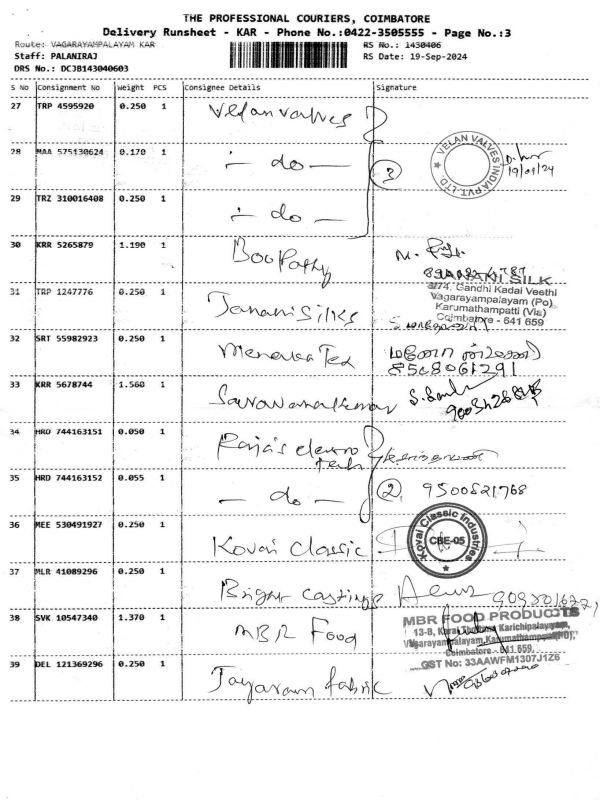 THE PROFESSIONAL COURIERS, COIMBATORE
Delivery Runsheet - KAR - Phone No.:0422-3505555 - Page No.:3
Route: VAGARAYAMPALAYAM KAR
RS No.: 1430406
Staff: PALANIRAJ
RS Date: 19-Sep-2024
DRS No.: DCJB143040603
S No Consignment No Weight PCS Consignee Details Signature
27 TRP 4595920 0.250 1 Velan valves
28 MAA 575130624 0.170 1 — do — 3 VELAN VALVES INDIA PVT. LTD. 19/09/24
29 TRZ 310016408 0.250 1 — do —
30 KRR 5265879 1.190 1 Boopathy
31 TRP 1247776 0.250 1 Janani Silks
JANANI SILK
3/74, Gandhi Kadai Veethi
Vagarayampalayam (Po)
Karumathampatti (Via)
Coimbatore - 641 659
32 SRT 55982923 0.250 1 Menaka Tex
8508061291
33 KRR 5678744 1.560 1 Saravanakumar
34 HRD 744163151 0.050 1 Raja's
35 HRD 744163152 0.055 1 — do — 2 9500821768
36 MEE 530491927 0.250 1 Kovai Classic Kovai Classic Industries CBE-05
37 MLR 41089296 0.250 1 Bright castings
38 SVK 10547340 1.370 1 MBR Food
MBR FOOD PRODUCTS
13-B, Karichipalayam,
Vagarayampalayam, Karumathampatti(PO),
Coimbatore - 641 659.
GST No: 33AAWFM1307J1Z6
39 DEL 121369296 0.250 1 Jayaram fabric